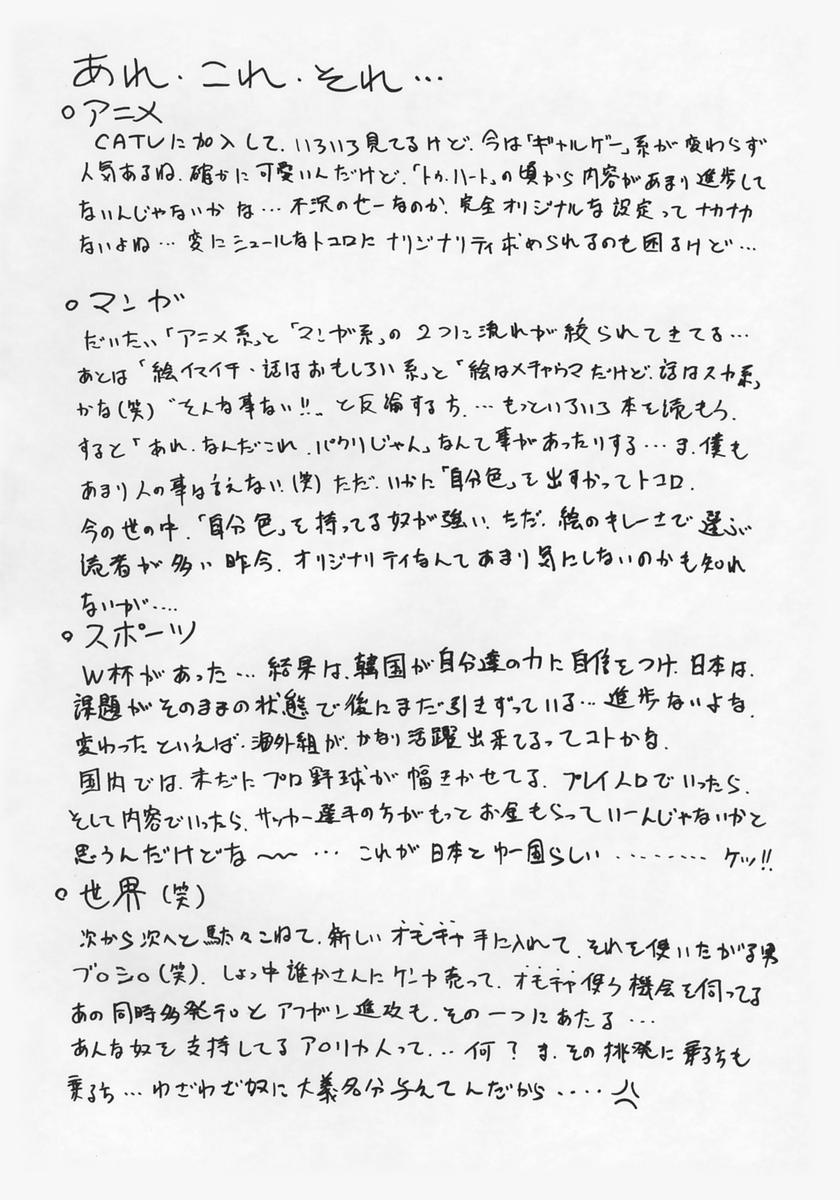 あれ・これ・それ…
○アニメ
CATVに加入して、いろいろ見てるけど、今は「ギャルゲー」系が変わらず
人気あるね、確かに可愛いんだけど、「トゥ・ハート」の頃から内容があまり進歩して
ないんじゃないかな…不沢のセーなのか、完全オリジナルな設定ってナカナカ
ないよね…変にシュールなトコロにオリジナリティ求められるのも困るけど…
○マンガ
だいたい「アニメ系」と「マンガ系」の2つに流れが絞られてきてる…
あとは「絵イマイチ・話はおもしろい系」と「絵はメチャウマだけど、話はスカ系」
かな(笑)“そんな事ない!!”と反論する方、…もっといろいろ本を読もう、
すると「あれ、なんだこれ、パクリじゃん」なんて事があったりする…ま、僕も
あまり人の事は言えない、(笑)ただ、いかに「自分色」を出すかってトコロ、
今の世の中、「自分色」を持ってる奴が強い、ただ、絵のキレーさで選ぶ
読者が多い昨今、オリジナリティなんてあまり気にしないのかも知れ
ないが….
○スポーツ
W杯があった…結果は、韓国が自分達の力に自信をつけ、日本は、
課題がそのままの状態で後にまだ引きずっている…進歩ないよな、
変わったといえば、海外組が、かなり活躍出来てるってコトかな、
国内では、未だにプロ野球が幅きかせてる、プレイ人口でいったら、
そして内容でいったら、サッカー選手の方がもっとお金もらっていーんじゃないかと
思うんだけどな〜〜…これが日本とゆー国らしい………ケッ!!
○世界(笑)
次から次へと駄々こねて、新しいオモチャ手に入れて、それを使いたがる男
ブ○シ○(笑)、しょっ中誰かさんにケンカ売って、オモチャ使う機会を伺ってる
あの同時多発テ○とアフガン進攻も、その一つにあたる…
あんな奴を支持してるア○リカ人って…何?ま、その挑発に乗る方も
乗る方…わざわざ奴に大義名分与えてんだから….